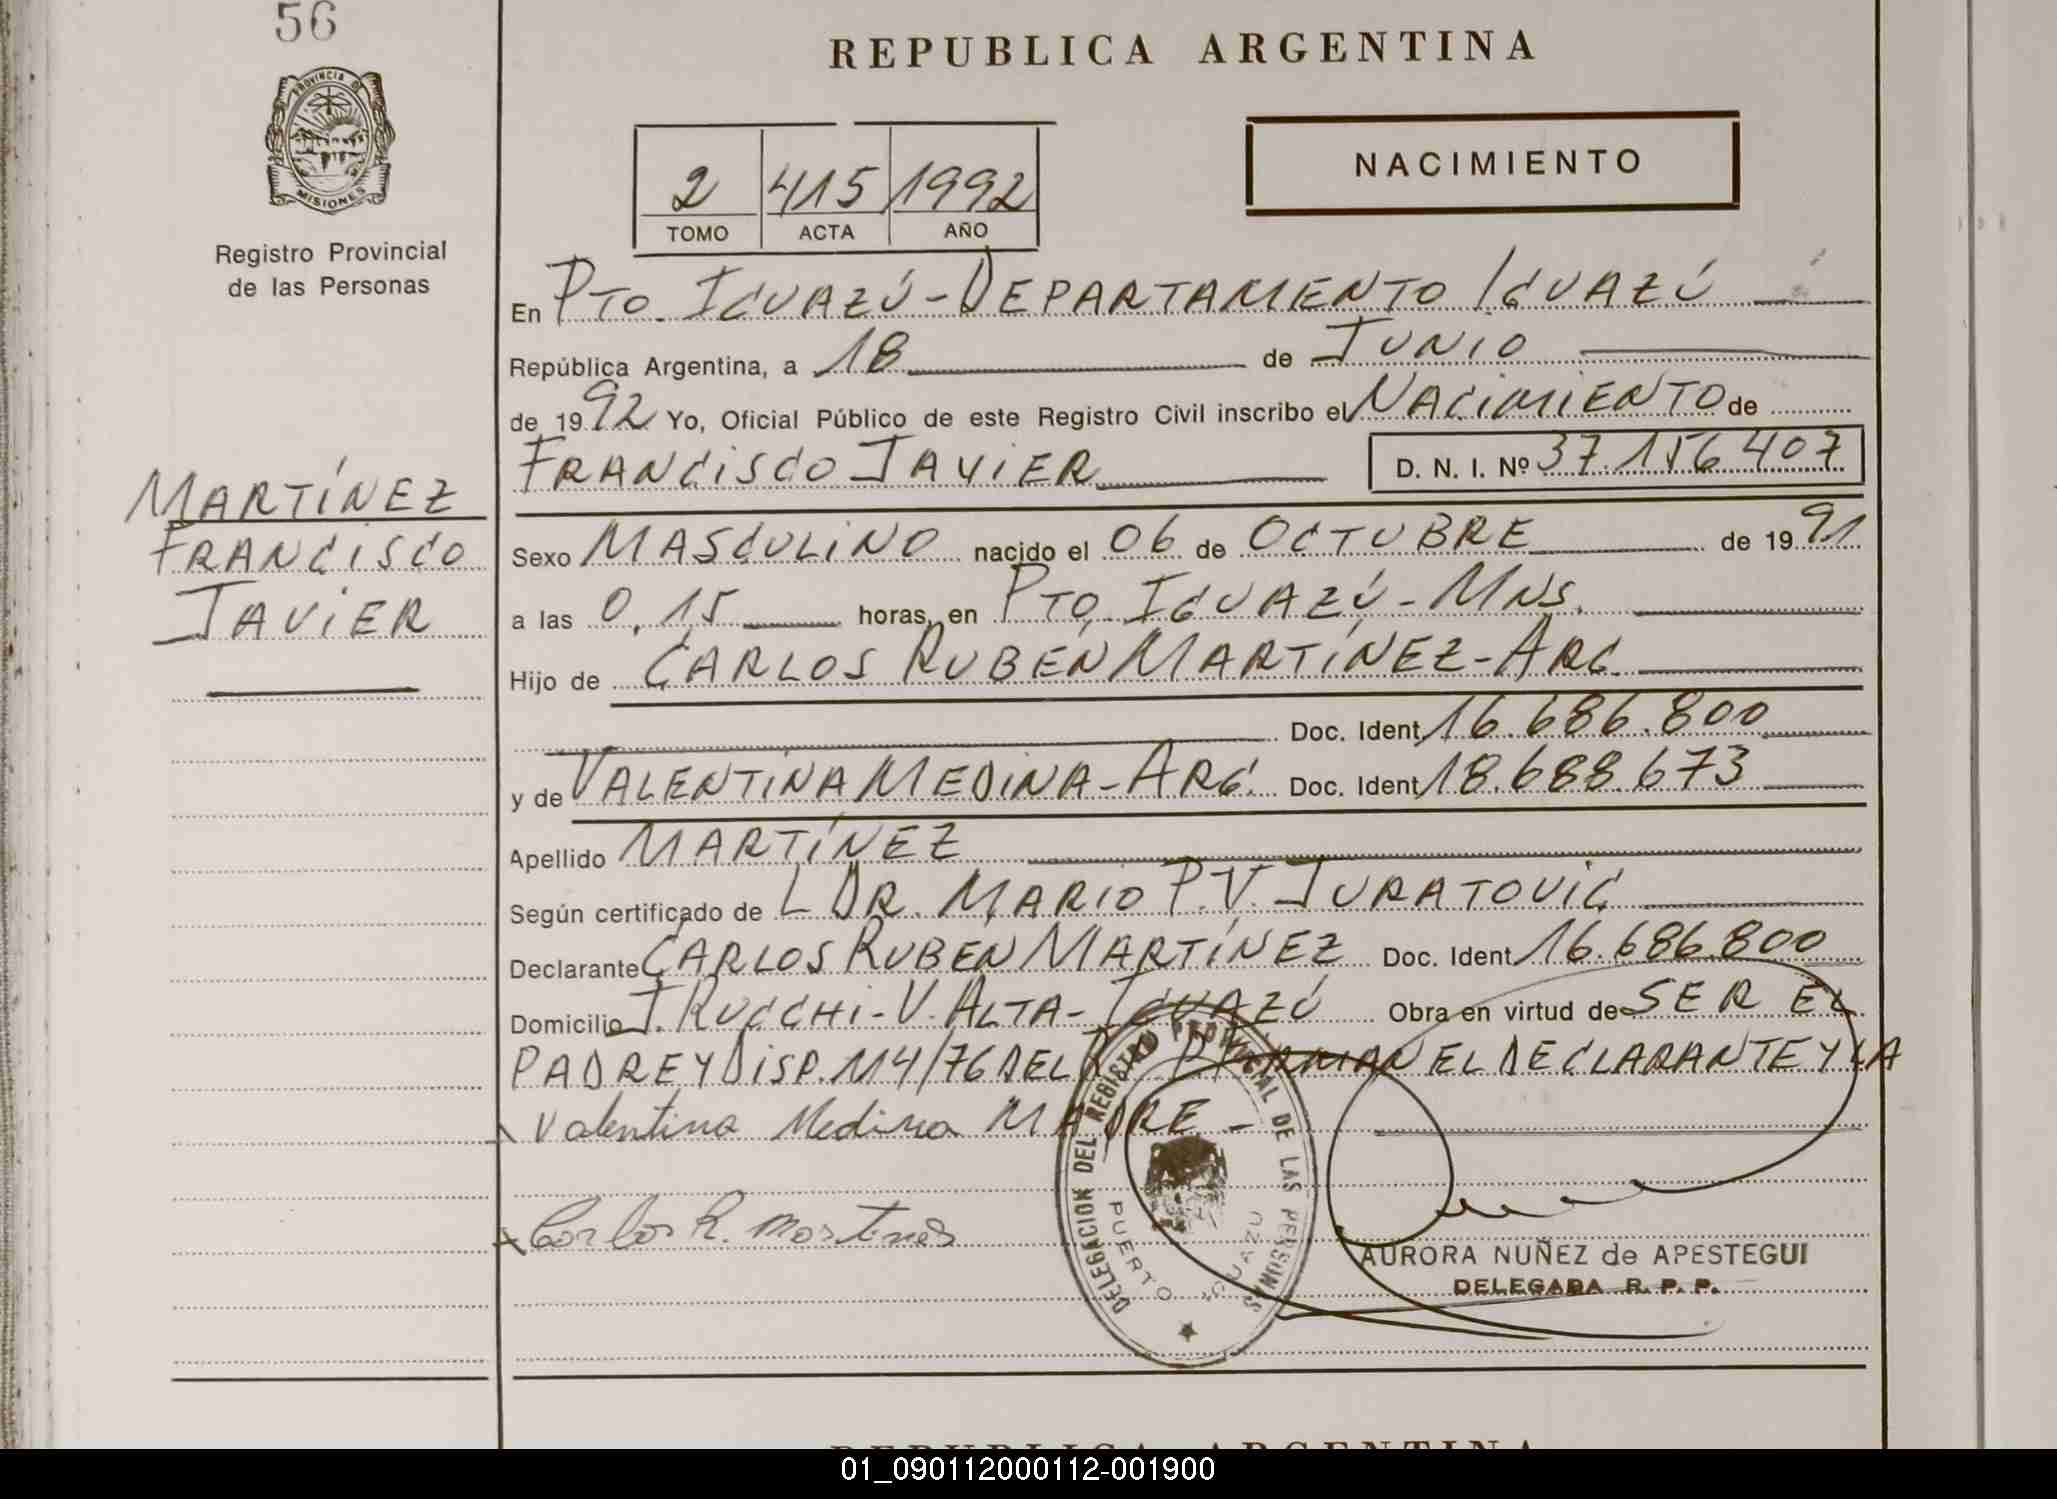 56
PROVINCIA DE
MISIONES
Registro Provincial
de las Personas
REPUBLICA ARGENTINA
2 415 1992
TOMO ACTA AÑO
NACIMIENTO
En PTO. IGUAZÚ - DEPARTAMENTO IGUAZÚ
República Argentina, a 18 de JUNIO
de 1992 Yo, Oficial Público de este Registro Civil inscribo el NACIMIENTO de
FRANCISCO JAVIER D. N. I. Nº 37.156.407
MARTÍNEZ
FRANCISCO
JAVIER
Sexo MASCULINO nacido el 06 de OCTUBRE de 1991
a las 0,15 horas, en PTO. IGUAZÚ - MNS.
Hijo de CARLOS RUBEN MARTÍNEZ - ARG.
Doc. Ident 16.686.800
y de VALENTINA MEDINA - ARG. Doc. Ident 18.688.673
Apellido MARTÍNEZ
Según certificado de L DR. MARIO P.V. JURATOVIC
Declarante CARLOS RUBEN MARTÍNEZ Doc. Ident 16.686.800
Domicilio J. RUCCHI - V. ALTA - IGUAZÚ Obra en virtud de SER EL
PADRE Y DISP. 114/76 DEL FIRMAN EL DECLARANTE Y LA
Valentina Medina MADRE -
Carlos R. Martines
DELEGACION DEL REGISTRO PROVINCIAL DE LAS PERSONAS
PUERTO IGUAZU
AURORA NUÑEZ de APESTEGUI
DELEGADA R. P. P.
REPUBLICA ARGENTINA
01_090112000112-001900